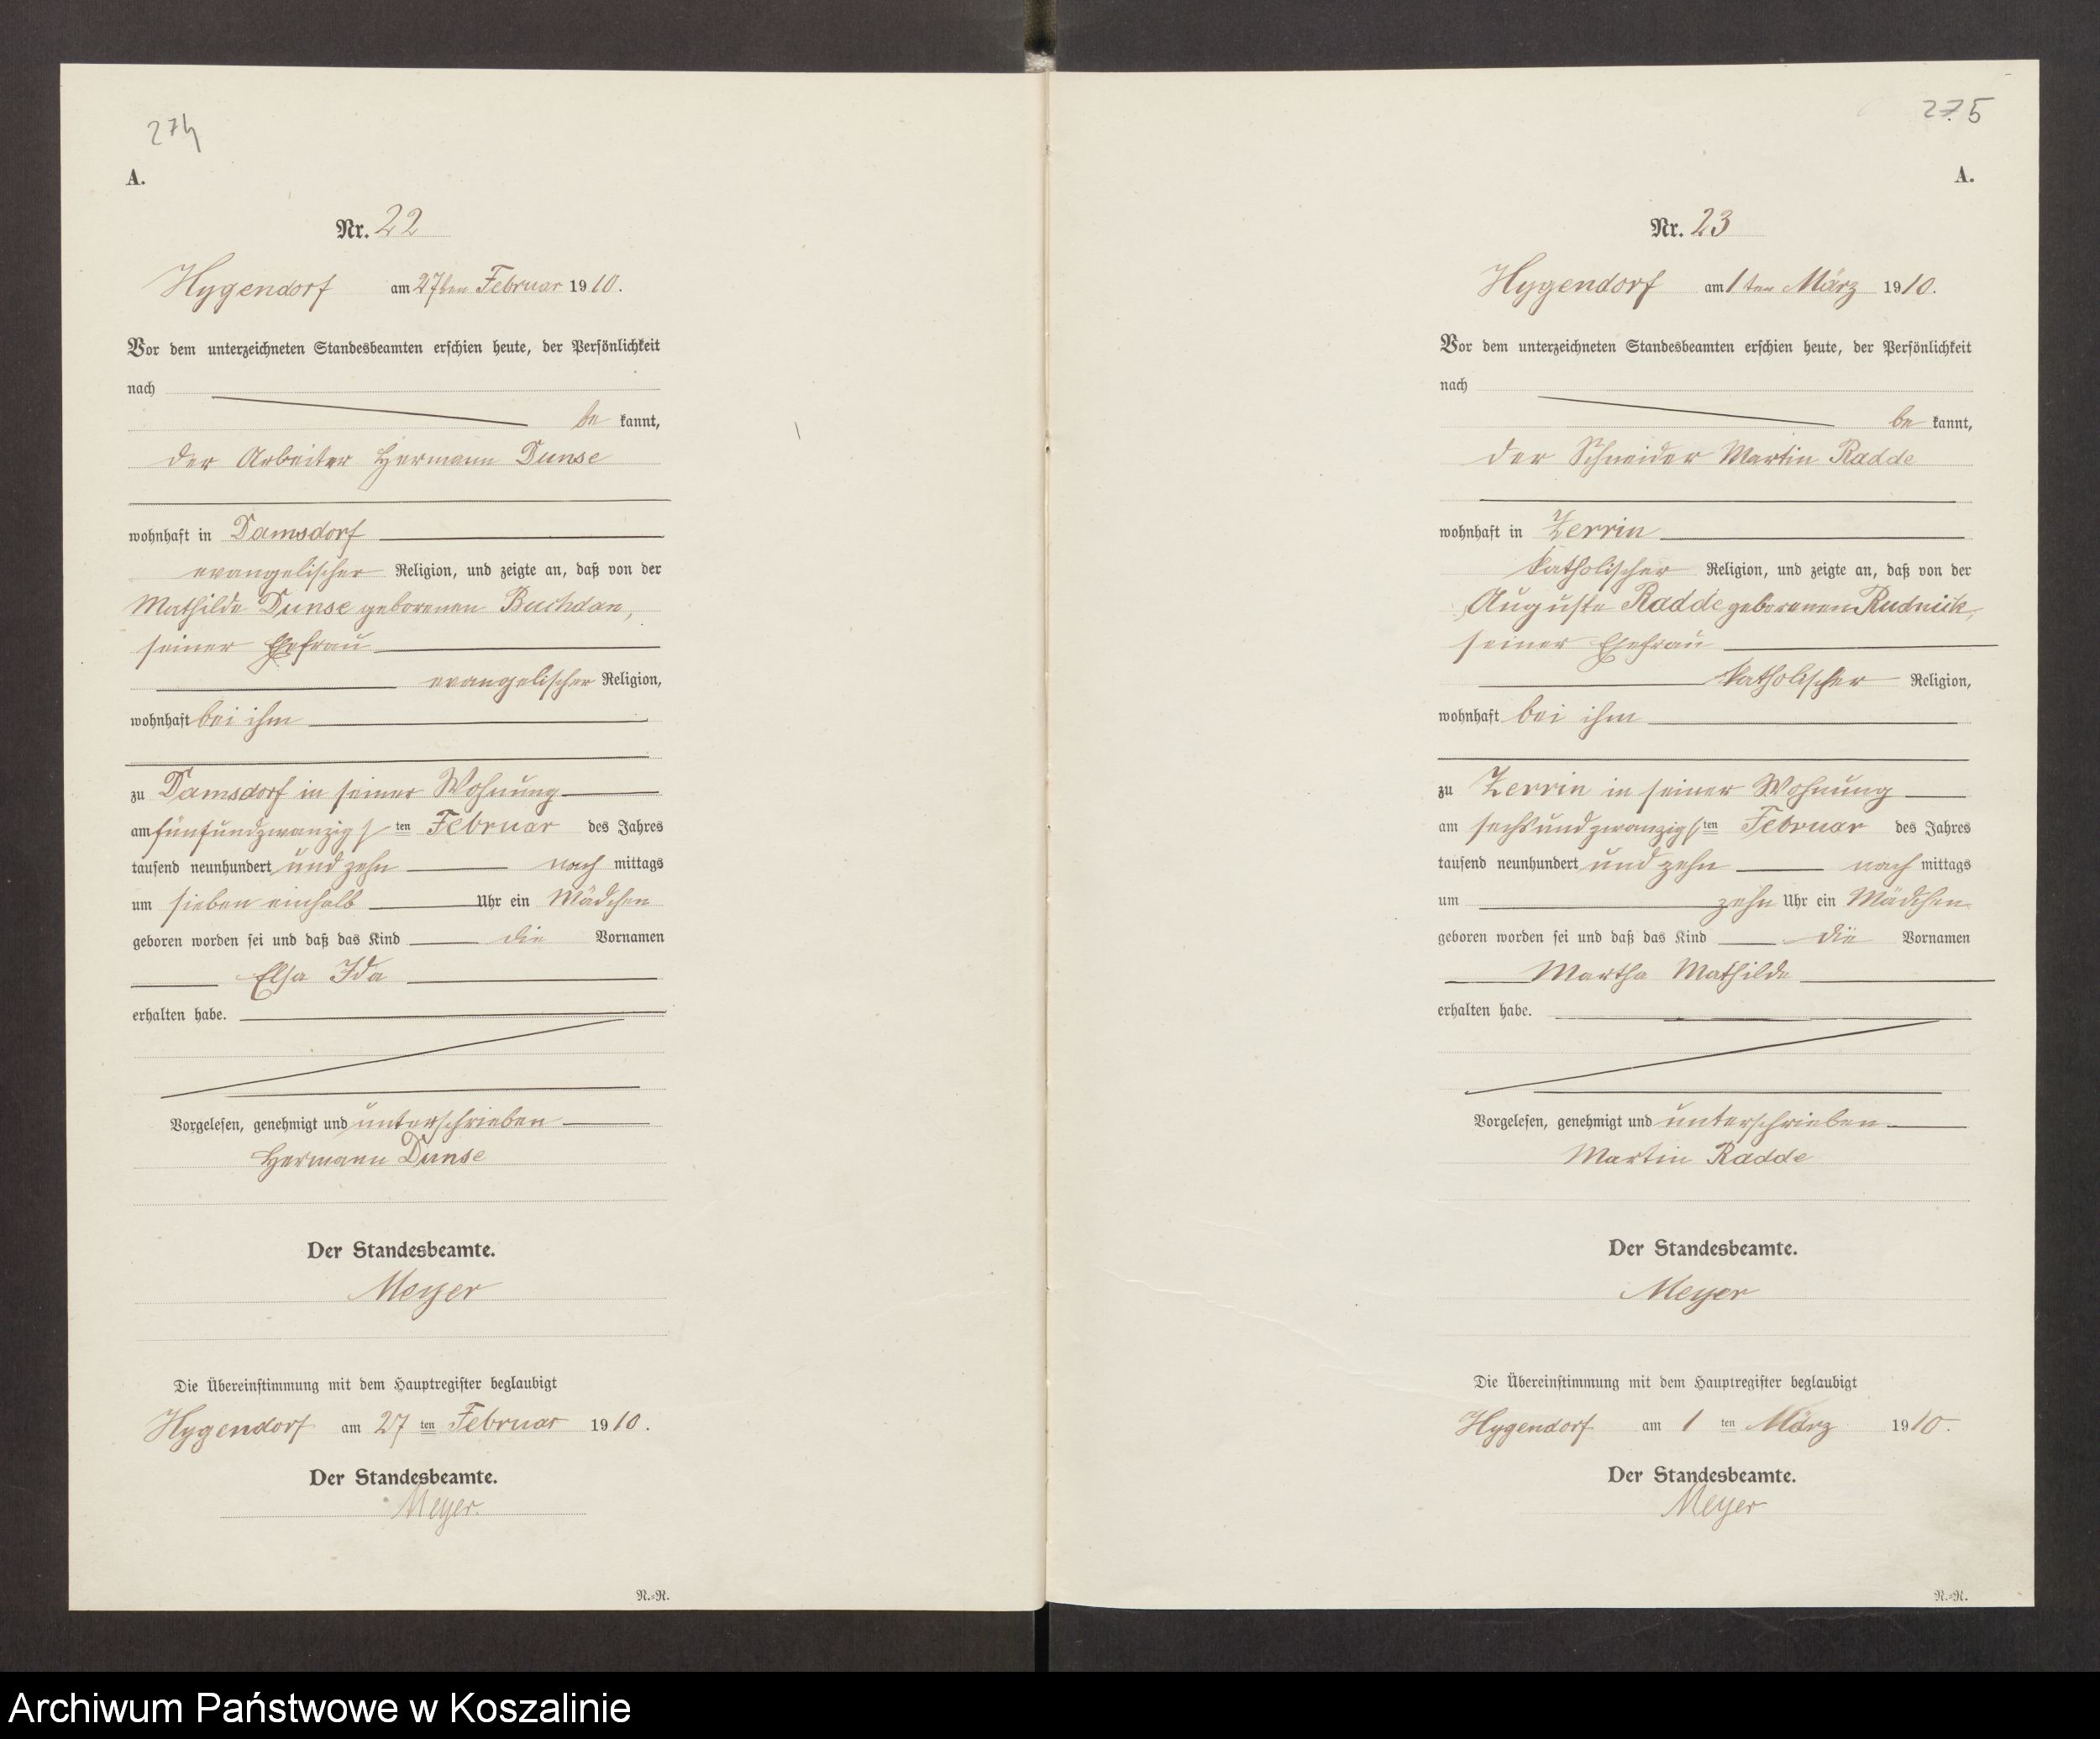 274
A.
Nr. 22
Hygendorf am 27ten Februar 1910.
Vor dem unterzeichneten Standesbeamten erschien heute, der Persönlichkeit
nach
be kannt,
der Arbeiter Hermann Dunse
wohnhaft in Damsdorf
evangelischer Religion, und zeigte an, daß von der
Mathilde Dunse geborenen Buchdan,
seiner Ehefrau
evangelischer Religion,
wohnhaft bei ihm
zu Damsdorf in seiner Wohnung
am fünfundzwanzigsten Februar des Jahres
tausend neunhundert und zehn nach mittags
um sieben einhalb Uhr ein Mädchen
geboren worden sei und daß das Kind die Vornamen
Elsa Ida
erhalten habe.
Vorgelesen, genehmigt und unterschrieben
Hermann Dunse
Der Standesbeamte.
Meyer
Die Übereinstimmung mit dem Hauptregister beglaubigt
Hygendorf am 27 ten Februar 1910.
Der Standesbeamte.
Meyer.
N.=N.
275
A.
Nr. 23
Hygendorf am 1 ten März 1910.
Vor dem unterzeichneten Standesbeamten erschien heute, der Persönlichkeit
nach
be kannt,
der Schneider Martin Radde
wohnhaft in Zerrin
katholischer Religion, und zeigte an, daß von der
Auguste Radde geborenen Rudnick,
seiner Ehefrau
katholischer Religion,
wohnhaft bei ihm
zu Zerrin in seiner Wohnung
am sechsundzwanzigsten Februar des Jahres
tausend neunhundert und zehn nach mittags
um zehn Uhr ein Mädchen
geboren worden sei und daß das Kind die Vornamen
Martha Mathilde
erhalten habe.
Vorgelesen, genehmigt und unterschrieben
Martin Radde
Der Standesbeamte.
Meyer
Die Übereinstimmung mit dem Hauptregister beglaubigt
Hygendorf am 1 ten März 1910.
Der Standesbeamte.
Meyer
N.=N.
Archiwum Państwowe w Koszalinie